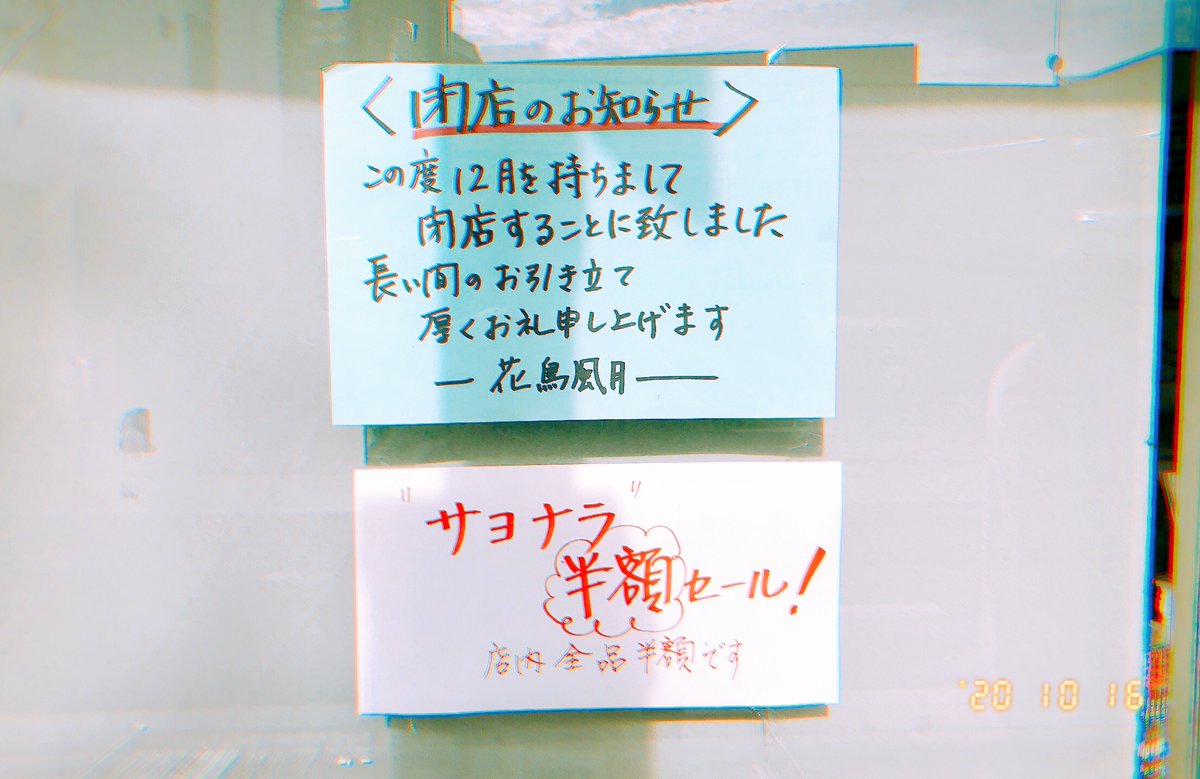 〈閉店のお知らせ〉
この度12月を持ちまして
閉店することに致しました
長い間のお引き立て
厚くお礼申し上げます
― 花鳥風月 ―
"サヨナラ"
半額セール!
店内全品半額です
'20 10 16